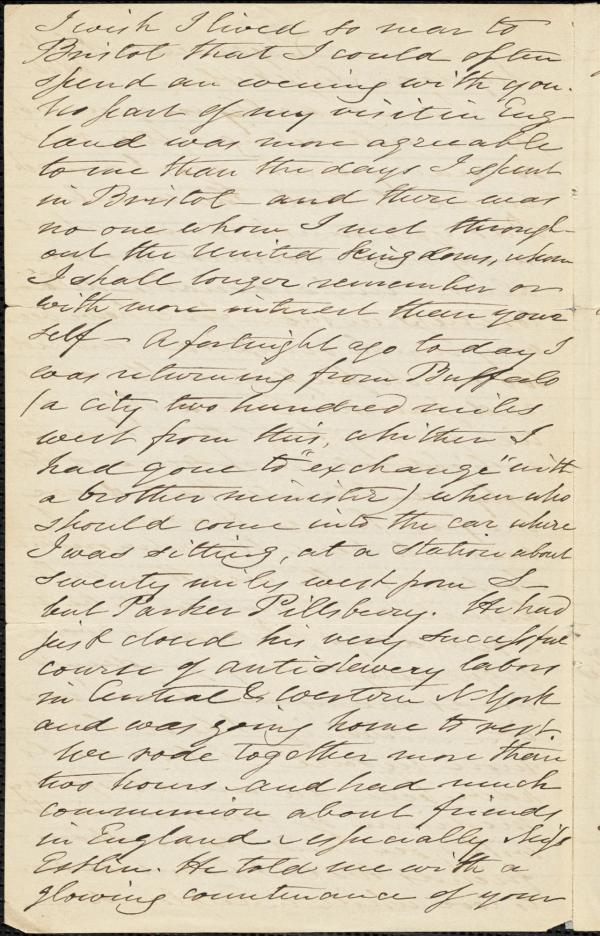 I wish I lived so near to
Bristol that I could often
spend an evening with you.
No part of my visit in Eng-
land was more agreeable
to me than the days I spent
in Bristol - and there was
no one whom I met through-
out the United Kingdoms, whom
I shall longer remember or
with more interest than your
self - A fortnight ago today I
was returning from Buffalo
(a city two hundred miles
west from this, whither I
had gone to "exchange" with
a brother minister) when who
should come into the car where
I was sitting, at a station about
seventy miles west from S-
but Parker Pillsbury. He had
just closed his very successful
course of antislavery labors
in Central & Western N York
and was going home to rest.
We rode together more than
two hours and had much
communion about friends
in England - especially Miss
Estlin. He told me with a
glowing countenance of your